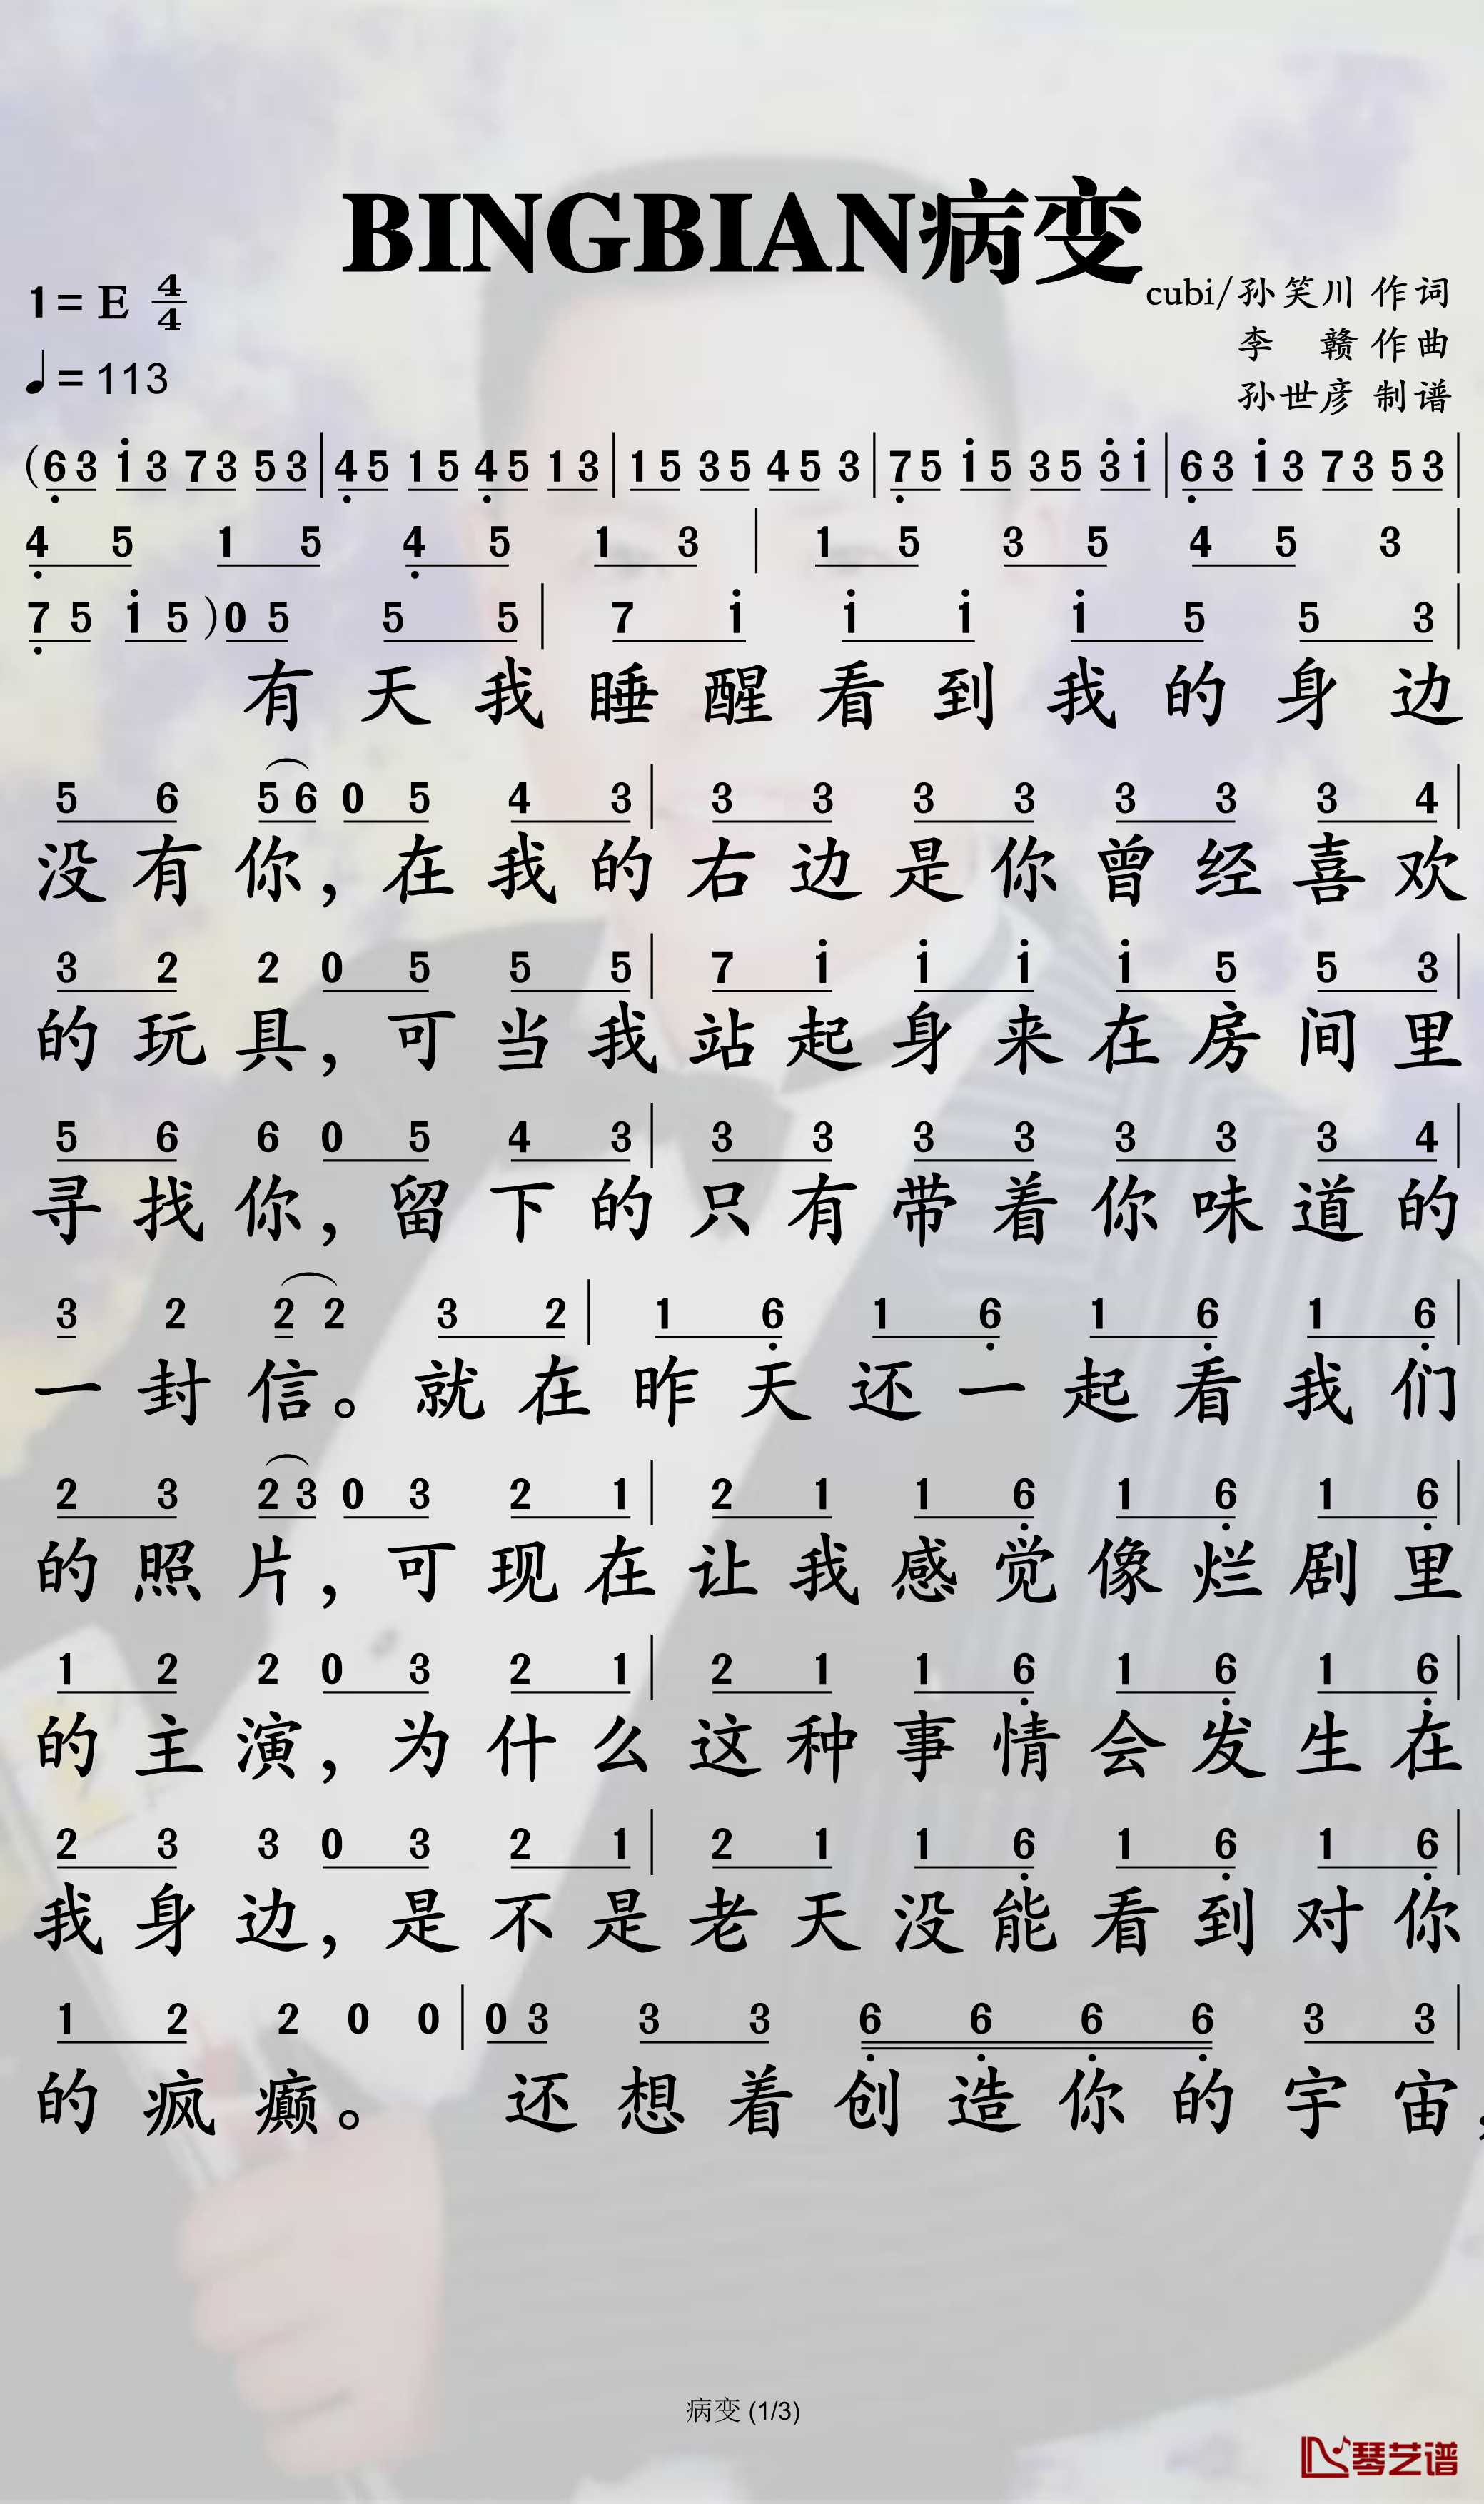 BINGBIAN病变
1= E 4/4
♩= 113
cubi/孙笑川 作词
李 赣 作曲
孙世彦 制谱
(6̣ 3 1̇ 3 7 3 5 3 | 4̣ 5 1 5 4̣ 5 1 3 | 1 5 3 5 4 5 3 | 7̣ 5 1̇ 5 3 5 3̇ 1̇ | 6̣ 3 1̇ 3 7 3 5 3 |
4̣ 5 1 5 4̣ 5 1 3 | 1 5 3 5 4 5 3 |
7̣ 5 1̇ 5 )0 5 5 5 | 7 1̇ 1̇ 1̇ 1̇ 5 5 3 |
有天我睡醒看到我的身边
5 6 5 6 0 5 4 3 | 3 3 3 3 3 3 3 4 |
没有你,在我的右边是你曾经喜欢
3 2 2 0 5 5 5 | 7 1̇ 1̇ 1̇ 1̇ 5 5 3 |
的玩具,可当我站起身来在房间里
5 6 6 0 5 4 3 | 3 3 3 3 3 3 3 4 |
寻找你,留下的只有带着你味道的
3 2 2 2 3 2 | 1 6̣ 1 6̣ 1 6̣ 1 6̣ |
一封信。就在昨天还一起看我们
2 3 2 3 0 3 2 1 | 2 1 1 6̣ 1 6̣ 1 6̣ |
的照片,可现在让我感觉像烂剧里
1 2 2 0 3 2 1 | 2 1 1 6̣ 1 6̣ 1 6̣ |
的主演,为什么这种事情会发生在
2 3 3 0 3 2 1 | 2 1 1 6̣ 1 6̣ 1 6̣ |
我身边,是不是老天没能看到对你
1 2 2 0 0 | 0 3 3 3 6̣ 6̣ 6̣ 6̣ 3 3 |
的疯癫。 还想着创造你的宇宙,
病变 (1/3)
琴艺谱